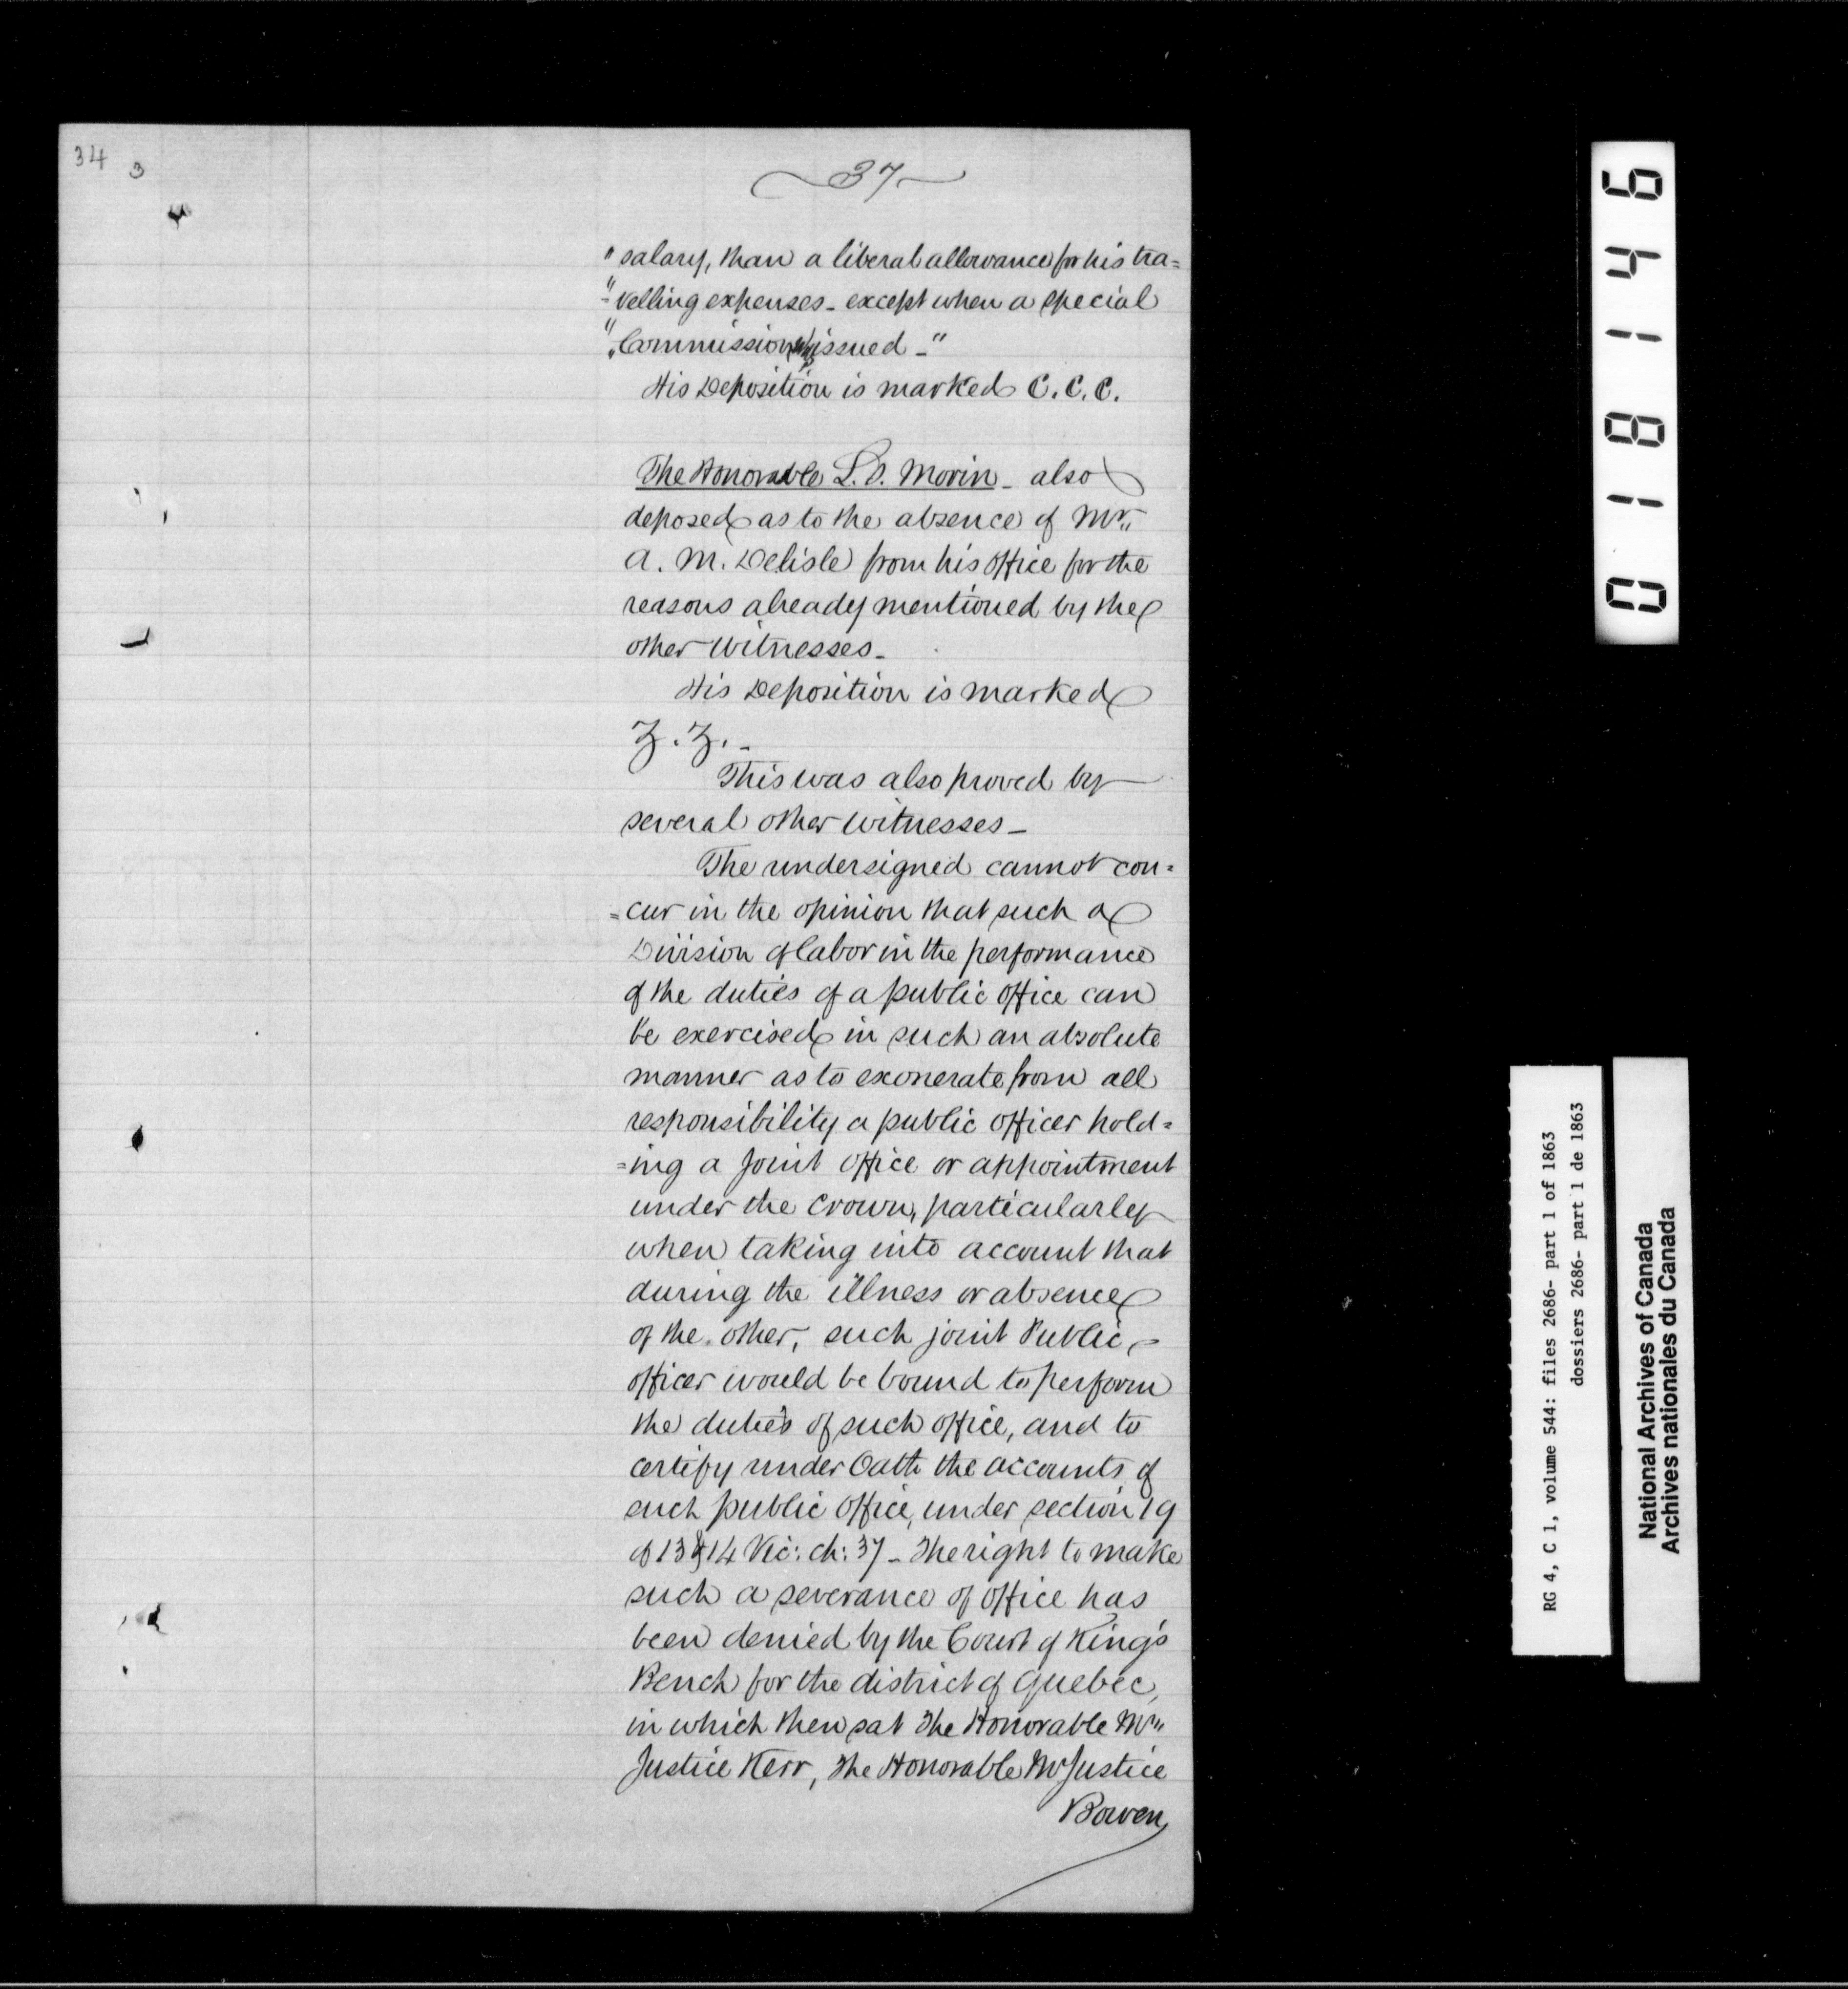 34 3
37
" salary, than a liberal allowance for his tra=
"=velling expenses - except when a special
" Commission issued - "
His Deposition is marked C. C. C.
The Honorable L. S. Morin - also
deposed as to the absence of Mr.
A. M. Delisle from his office for the
reasons already mentioned by the
other witnesses -
His Deposition is marked
Z. Z. -
This was also proved by
several other witnesses -
The undersigned cannot con=
=cur in the opinion that such a
Division of labor in the performance
of the duties of a public office can
be exercised in such an absolute
manner as to exonerate from all
responsibility a public officer hold=
=ing a joint office or appointment
under the Crown, particularly
when taking into account that
during the illness or absence
of the other, such joint Public
officer would be bound to perform
the duties of such office, and to
certify under Oath the accounts of
such public office, under section 19
of 13 & 14 Vic: ch: 37 - The right to make
such a severance of office has
been denied by the Court of King's
Bench for the district of Quebec,
in which then sat The Honorable Mr.
Justice Kerr, The Honorable Mr Justice
Bowen,
018146
RG 4, C 1, volume 544: files 2686- part 1 of 1863
dossiers 2686- part 1 de 1863
National Archives of Canada
Archives nationales du Canada